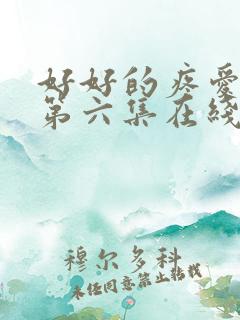 好好的疼爱
第六集在线
穆尔多科
未经同意禁止转载